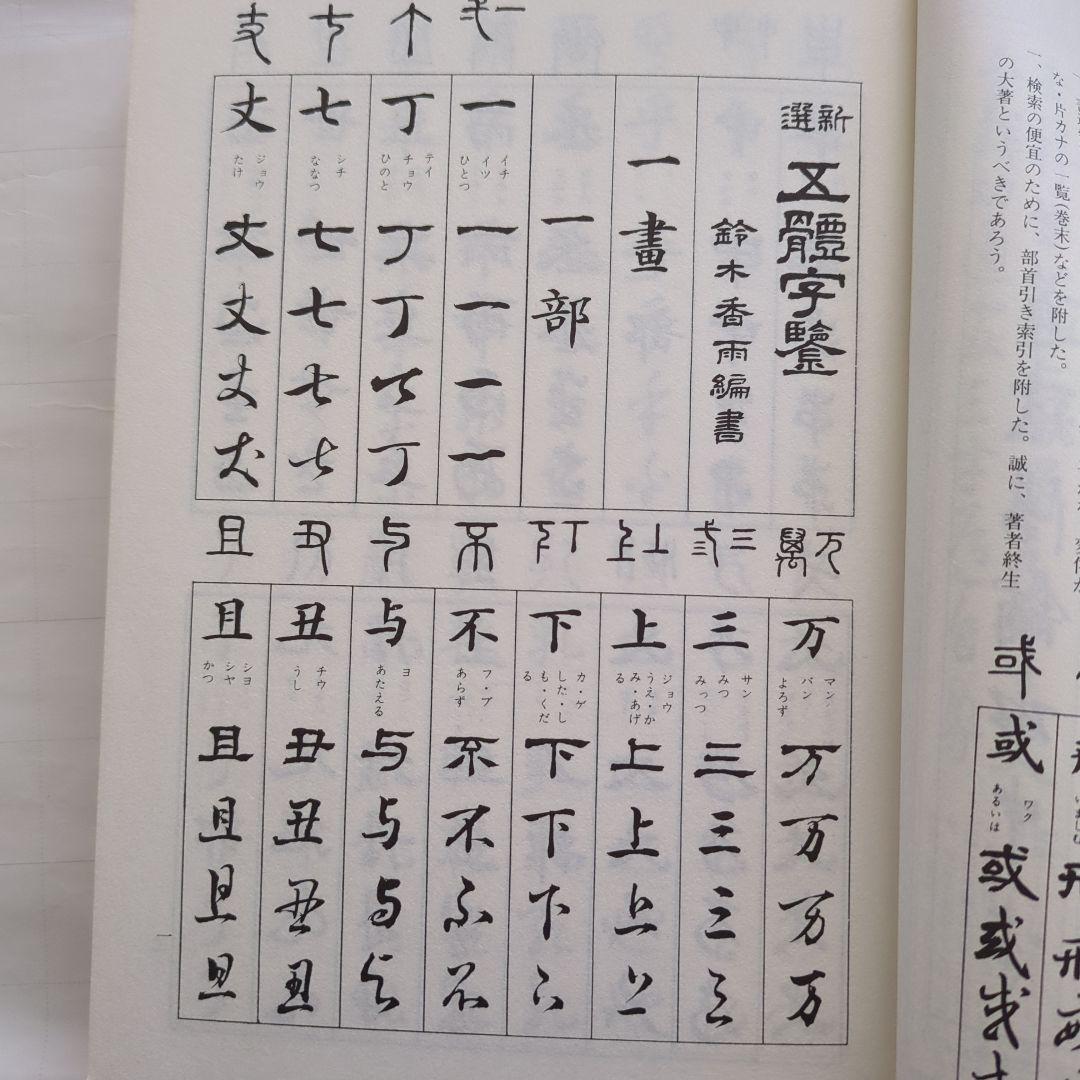 な・片カナの一覧(巻末)などを附した。
一、検索の便宜のために、部首引き索引を附した。誠に、著者終生
の大著というべきであろう。
或
或
ワク
あるいは
或
或
或
新選
五體字鑒
鈴木香雨編書
一畫
一部
弌一
一
イチ
イツ
ひとつ
一
一
一
一
丁
丁
テイ
チョウ
ひのと
丁
丁
丁
丁
七
七
シチ
ななつ
七
七
七
七
丈
丈
ジョウ
たけ
丈
丈
丈
丈
万萬
万
マン
バン
よろず
万
万
万
万
三弎
三
サン
みつ
みっつ
三
三
三
三
上
上
ジョウ
うえ・か
み・あげ
る
上
上
上
上
下
下
カ・ゲ
した・し
も・くだ
る
下
下
下
下
不
不
フ・ブ
あらず
不
不
不
不
与
与
ヨ
あたえる
与
与
与
与
丑
丑
チウ
うし
丑
丑
丑
丑
且
且
シヨ
シヤ
かつ
且
且
且
且
一